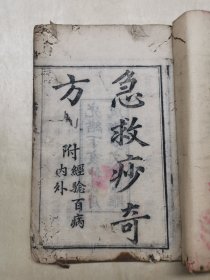 急救痧奇
方
附
經驗百病
內外